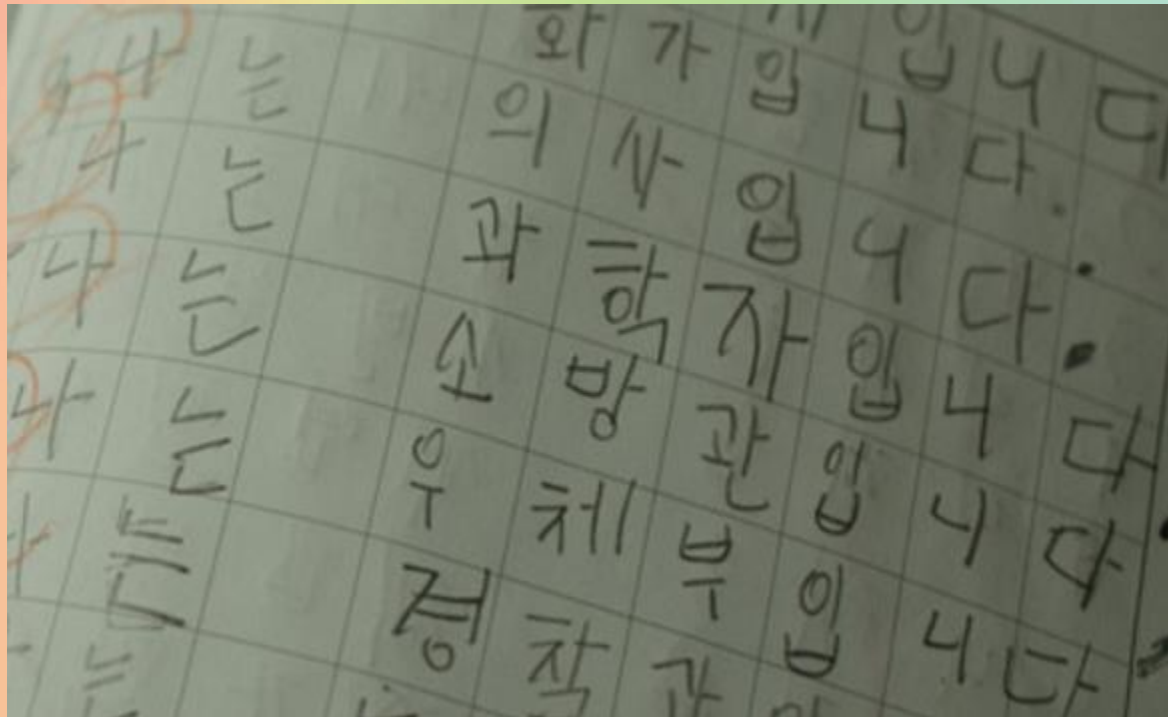 입니다
화가입니다.
나는 의사입니다.
나는 과학자입니다
나는 소방관입니다.
나는 우체부입니다.
는 경찰관
는